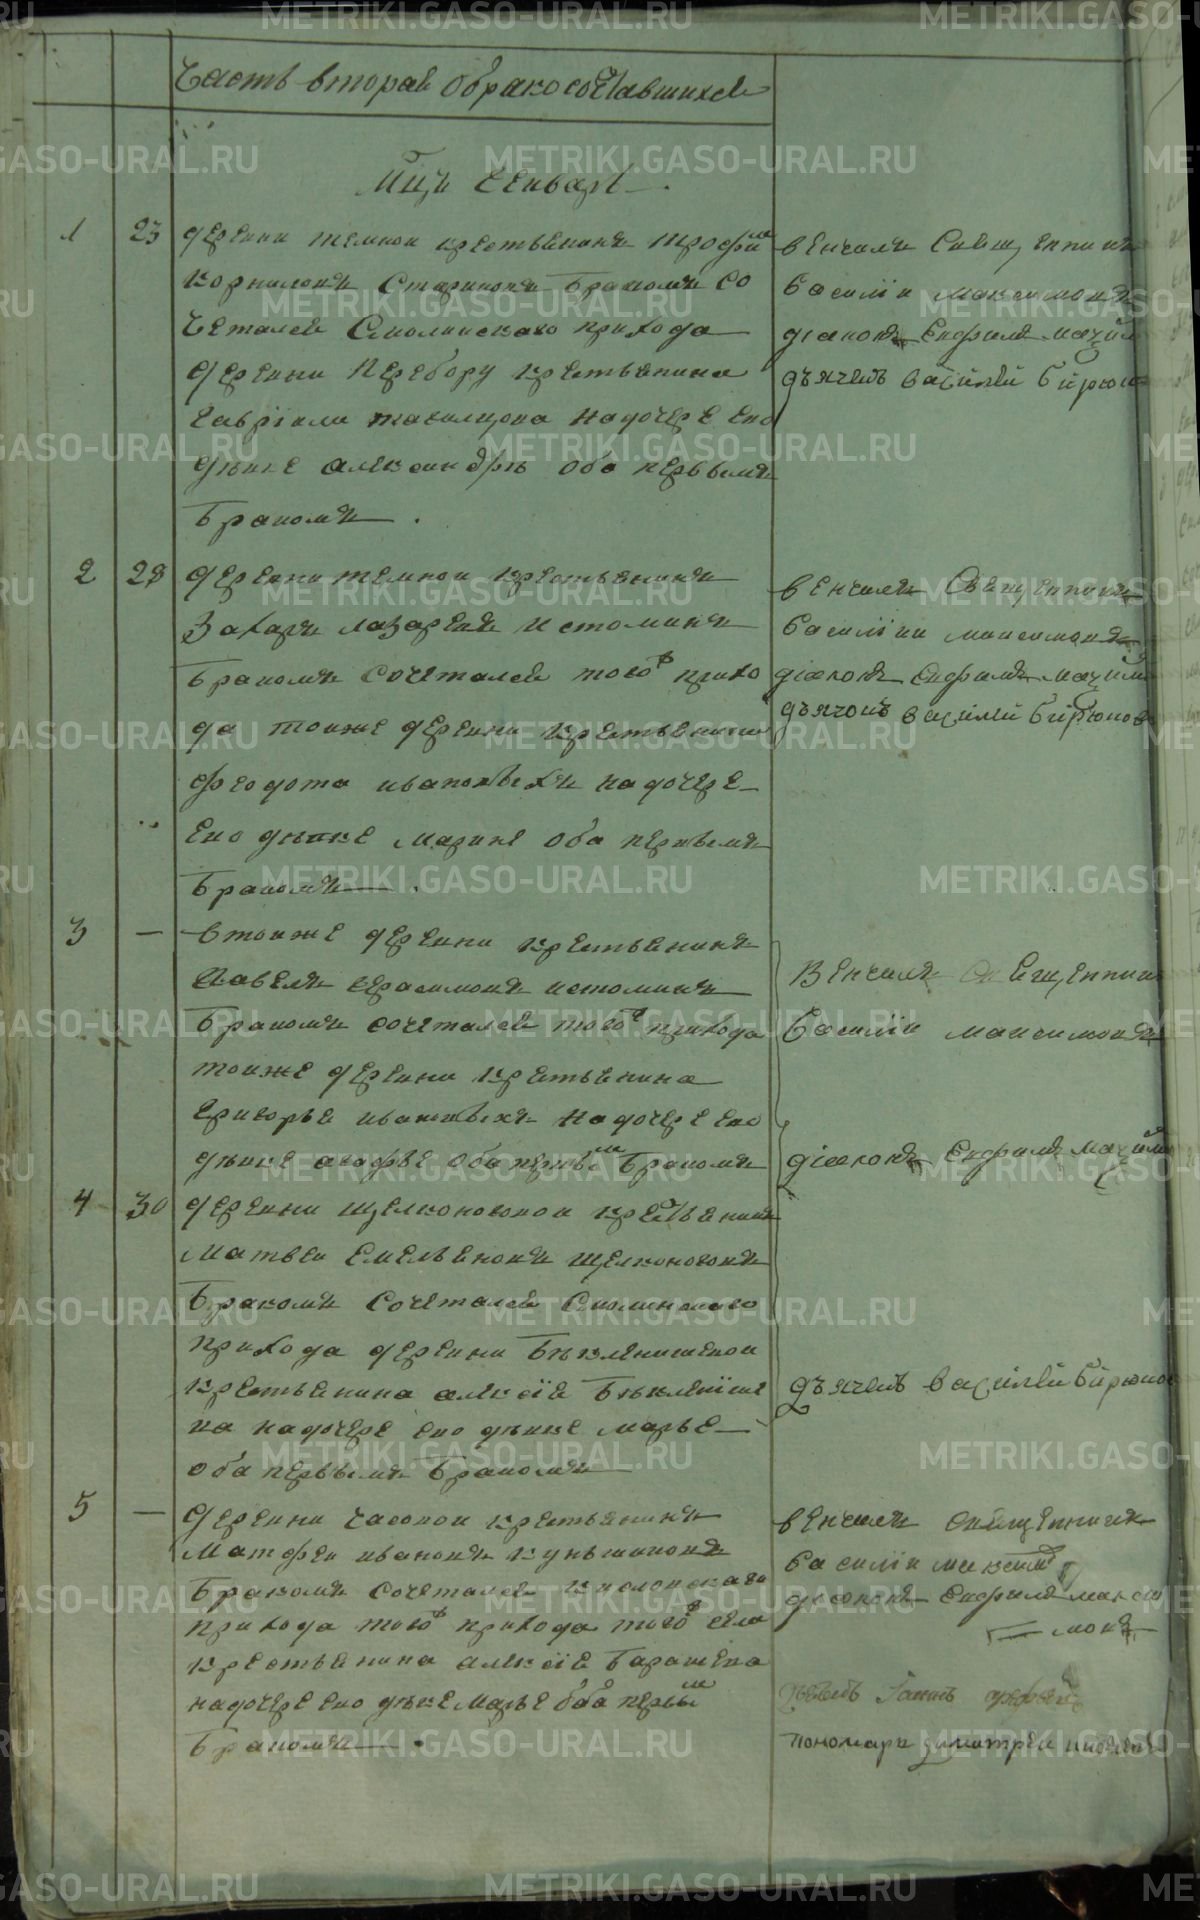 Часть вторая о бракосочетавшихся
Мцъ Генварь
1 23 деревни темной крестьянинъ трофим
корниловъ Стариковъ бракомъ со
четался Смолинскаго прихода
деревни Перебору крестьянина
гавріила на дочере его
девке александре оба первымъ
бракомъ
венчалъ Священникъ
василіи максимовъ
діаконъ Енфимъ
дьячекъ василей бирюко
2 28 деревни темной крестьянинъ
Захаръ лазаревъ истоминъ
бракомъ сочетался тогож прихо
да тоиже деревни крестьянина
феодота ивановыхъ на дочере
его девке марине оба первымъ
бракомъ
венчалъ Священникъ
василіи максимовъ
діаконъ Енфимъ
дьячокъ василей бирюков
3 — втоиже деревни крестьянинъ
Павелъ герасимовъ истоминъ
бракомъ сочетался тогож прихода
тоиже деревни крестьянина
григорья ивановыхъ на дочере его
девке агафье оба первым бракомъ
Венчалъ Священник
василіи максимовъ
діаконъ Енфимъ
дьячекъ василей бирюко
4 30 деревни щелконоговой крестьянин
матвеи емельяновъ щелконоговъ
бракомъ сочетался Смолинскаго
прихода деревни
крестьянина алексея
на дочере его девке марье
оба первымъ бракомъ
5 — деревни часовой крестьянинъ
Матфеи ивановъ
бракомъ сочетался
прихода тогож прихода тогож села
крестьянина алексея
на дочере его девке марье оба первым
бракомъ
венчалъ священникъ
василіи
діаконъ Енфимъ макси
мовъ
пономарь димитреи